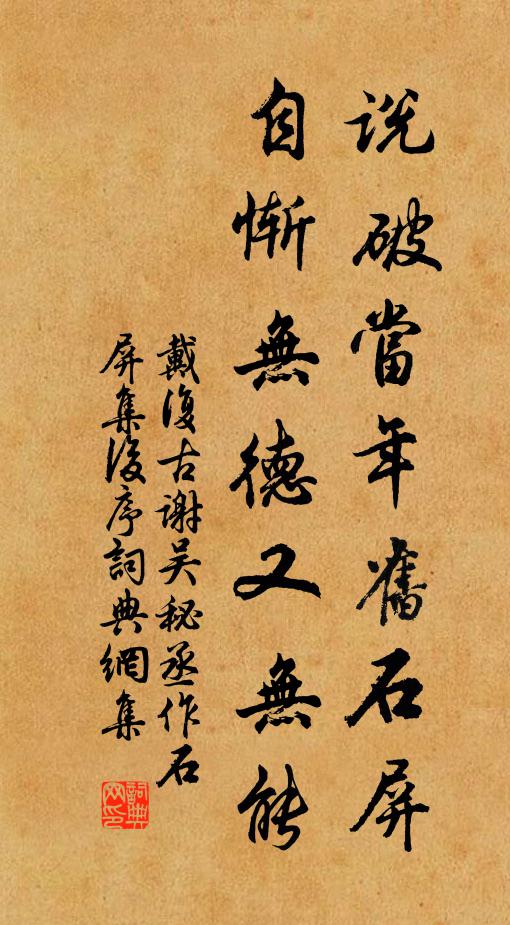 説破當年舊石屏
自慚無德又無能
戴復古謝吴秘丞作石
屏集後序詞典網集
詞典网印